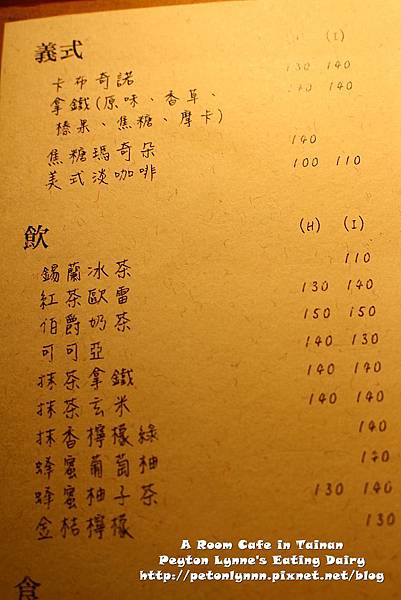 義式 (H) (I)
卡布奇諾 130 140
拿鐵(原味、香草、 140
榛果、焦糖、摩卡)
焦糖瑪奇朵 140
美式淡咖啡 100 110
飲 (H) (I)
錫蘭冰茶 110
紅茶歐雷 130 140
伯爵奶茶 150 150
可可亞 140 130
抹茶拿鐵 140 140
抹茶玄米 140 140
抹香檸檬綠 140
蜂蜜葡萄柚
蜂蜜柚子茶 130 140
金桔檸檬 130
食
A Room Cafe in Tainan
Peyton Lynne's Eating Dairy
http://petonlynnn.pixnet.net/blog